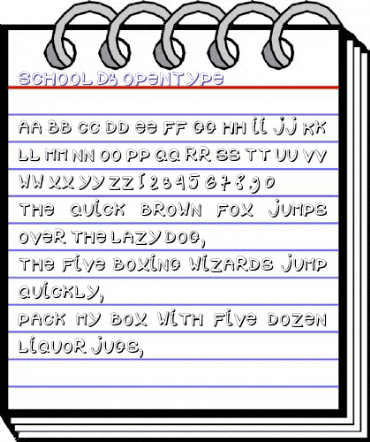 SCHOOL D3 OPENTYPE
AA BB CC DD ee FF GG HH ii jj KK
LL MM NN OO PP QQ RR SS TT UU VV
WW XX YY ZZ 1 2 3 4 5 6 7 8 9 0
THe QUiCK BROWN FOX jUMPS
OVeR THe LAZY DOG,
THe FiVe BOXiNG WiZARDS jUMP
QUiCKLY,
PACK MY BOX WiTH FiVe DOZeN
LiQUOR jUGS,